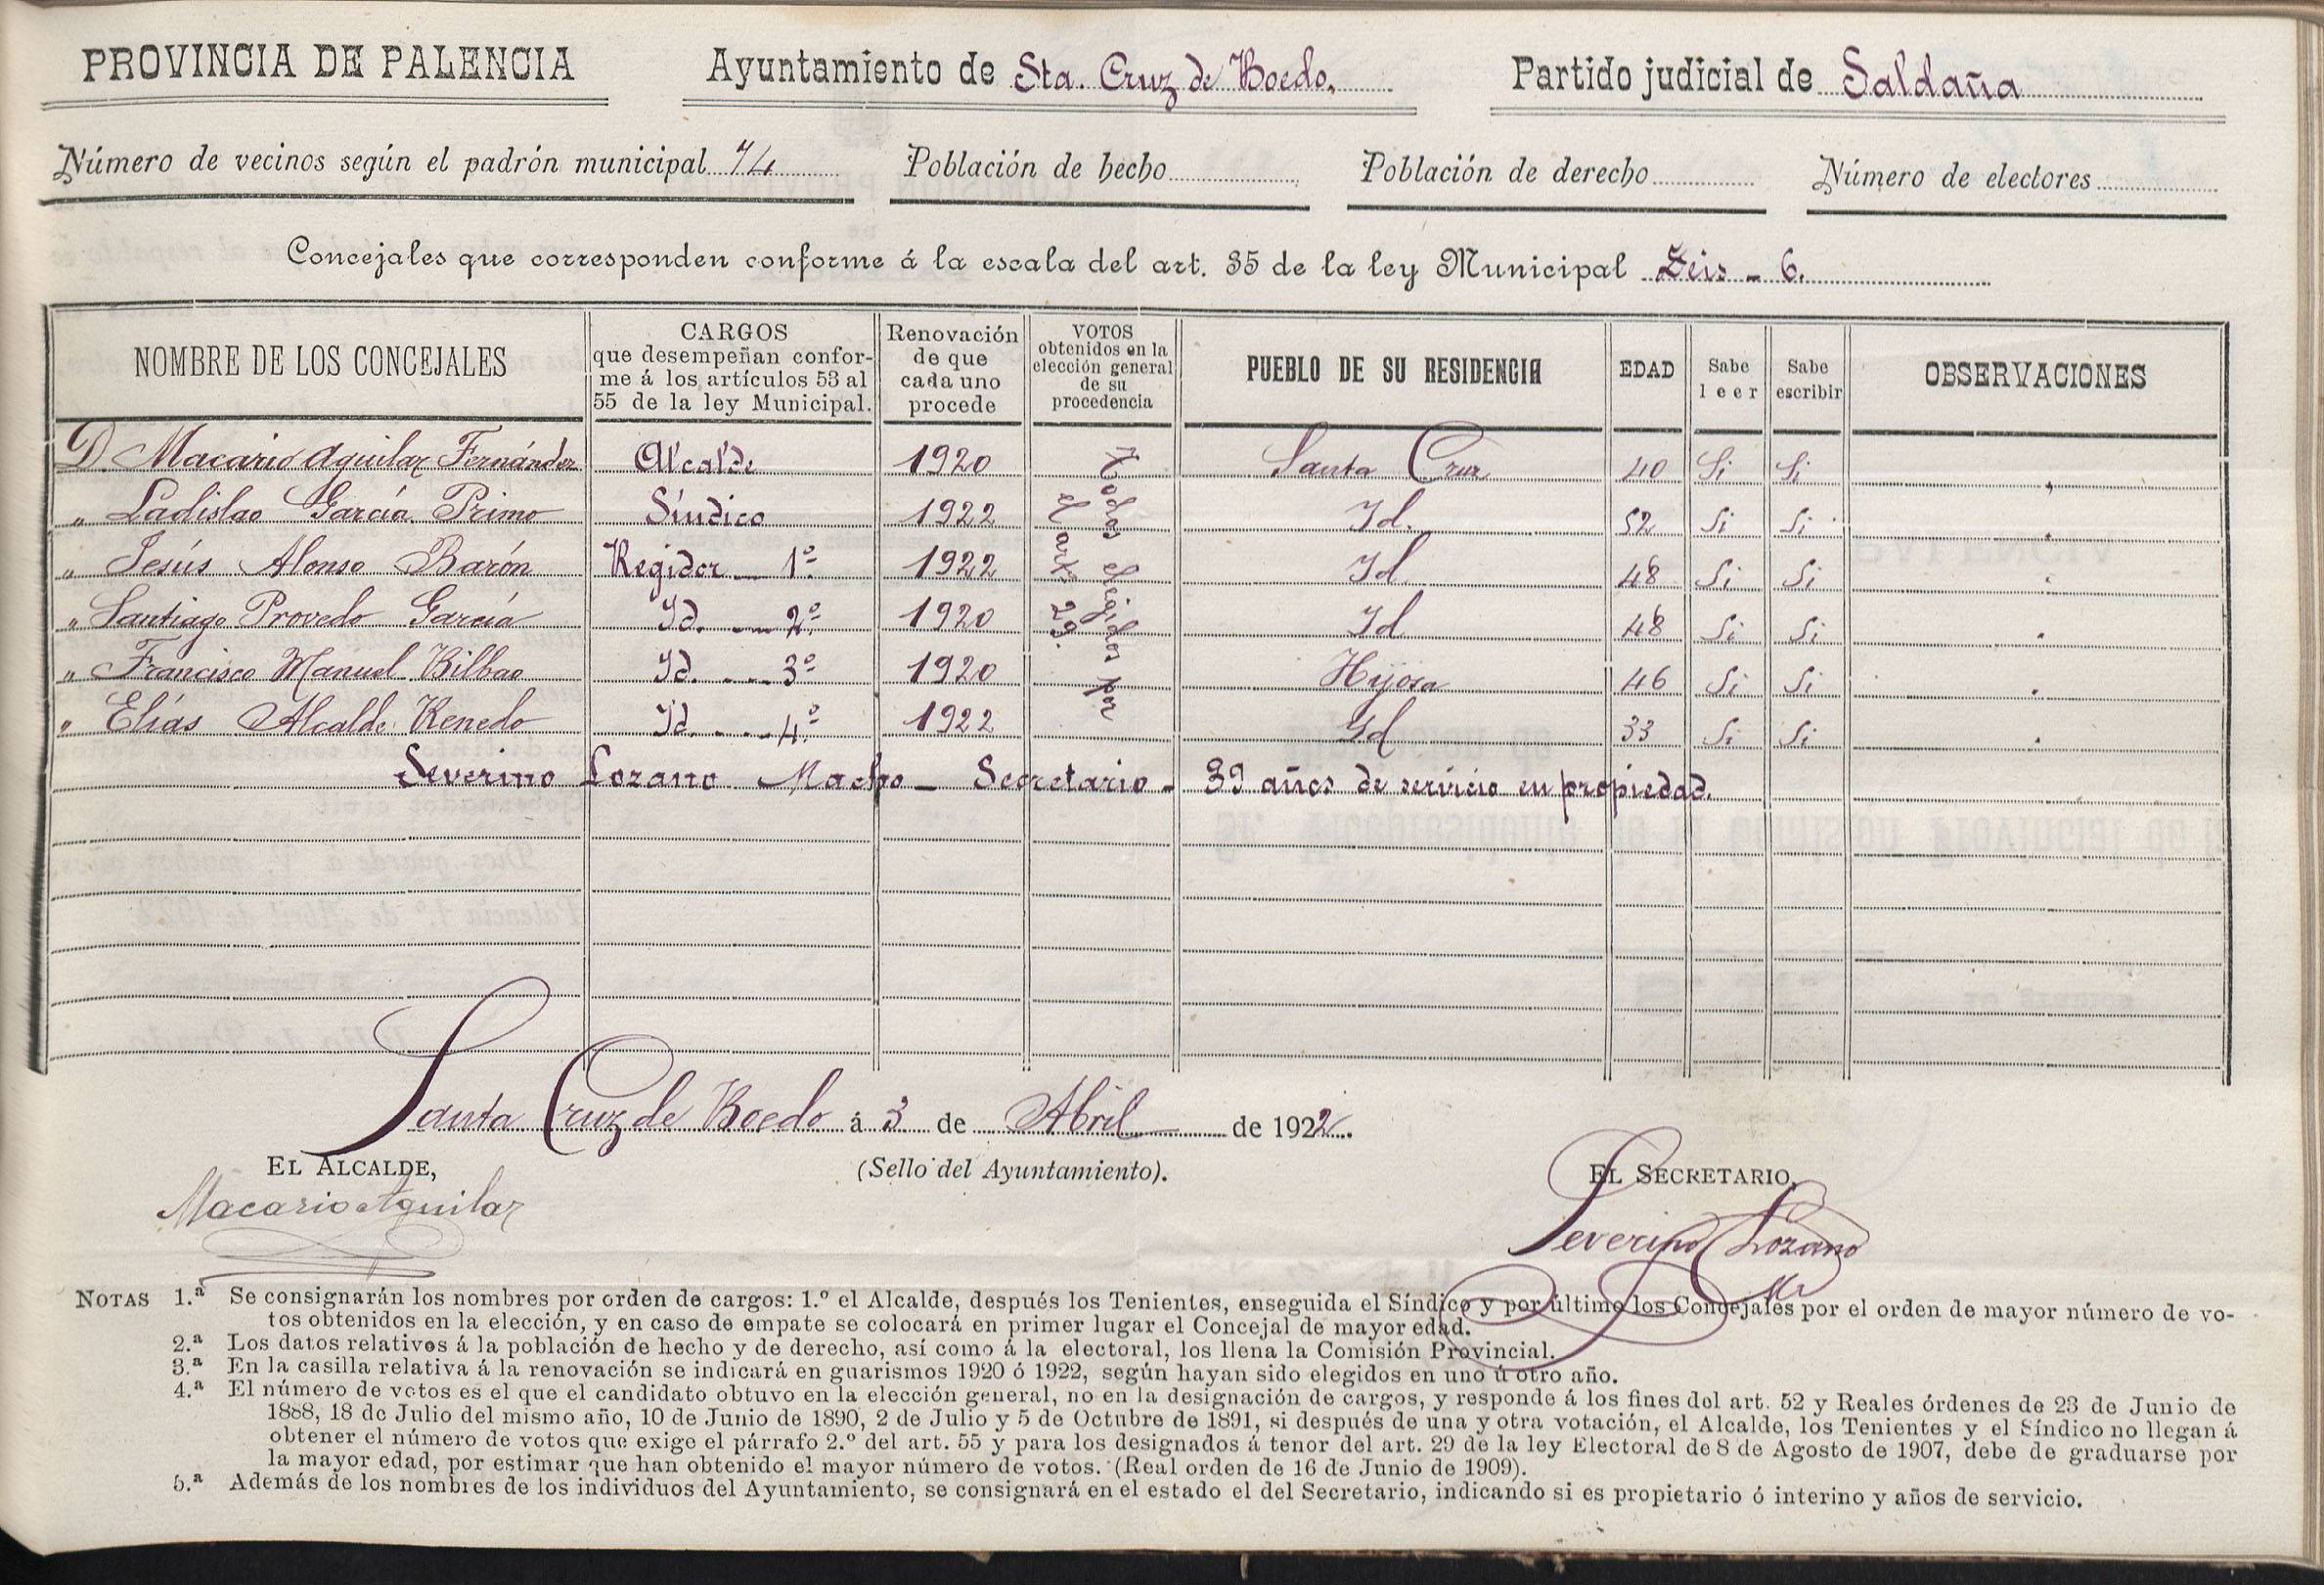 PROVINCIA DE PALENCIA Ayuntamiento de Sta. Cruz de Boedo. Partido judicial de Saldaña
Número de vecinos según el padrón municipal 74 Población de hecho Población de derecho Número de electores
Concejales que corresponden conforme á la escala del art. 35 de la ley Municipal Seis - 6.
NOMBRE DE LOS CONCEJALES
CARGOS
que desempeñan confor-
me á los artículos 53 al
55 de la ley Municipal.
Renovación
de que
cada uno
procede
VOTOS
obtenidos en la
elección general
de su
procedencia
PUEBLO DE SU RESIDENCIA
EDAD
Sabe
leer
Sabe
escribir
OBSERVACIONES
D. Macario Aguilar Fernández Alcalde 1920 Santa Cruz 40 Si Si "
" Ladislao García Primo Síndico 1922 Id. 52 Si Si "
" Jesús Alonso Barón Regidor - 1º 1922 Id 48 Si Si "
" Santiago Provedo García Id. - 2º 1920 Id 48 Si Si "
" Francisco Manuel Bilbao Id. - 3º 1920 Hijosa 46 Si Si "
" Elías Alcalde Renedo Id. - 4º 1922 Id 33 Si Si "
Todos elegidos por
el art. 29.
Severino Lozano Macho - Secretario - 39 años de servicio en propiedad.
Santa Cruz de Boedo á 3 de Abril de 1922.
EL ALCALDE, (Sello del Ayuntamiento). EL SECRETARIO,
Macario Aguilar
Severino Lozano
NOTAS 1.ª Se consignarán los nombres por orden de cargos: 1.º el Alcalde, después los Tenientes, enseguida el Síndico y por último los Concejales por el orden de mayor número de vo-
tos obtenidos en la elección, y en caso de empate se colocará en primer lugar el Concejal de mayor edad.
2.ª Los datos relativos á la población de hecho y de derecho, así como á la electoral, los llena la Comisión Provincial.
3.ª En la casilla relativa á la renovación se indicará en guarismos 1920 ó 1922, según hayan sido elegidos en uno ú otro año.
4.ª El número de votos es el que el candidato obtuvo en la elección general, no en la designación de cargos, y responde á los fines del art. 52 y Reales órdenes de 23 de Junio de
1888, 18 de Julio del mismo año, 10 de Junio de 1890, 2 de Julio y 5 de Octubre de 1891, si después de una y otra votación, el Alcalde, los Tenientes y el Síndico no llegan á
obtener el número de votos que exige el párrafo 2.º del art. 55 y para los designados á tenor del art. 29 de la ley Electoral de 8 de Agosto de 1907, debe de graduarse por
la mayor edad, por estimar que han obtenido el mayor número de votos. (Real orden de 16 de Junio de 1909).
5.ª Además de los nombres de los individuos del Ayuntamiento, se consignará en el estado el del Secretario, indicando si es propietario ó interino y años de servicio.